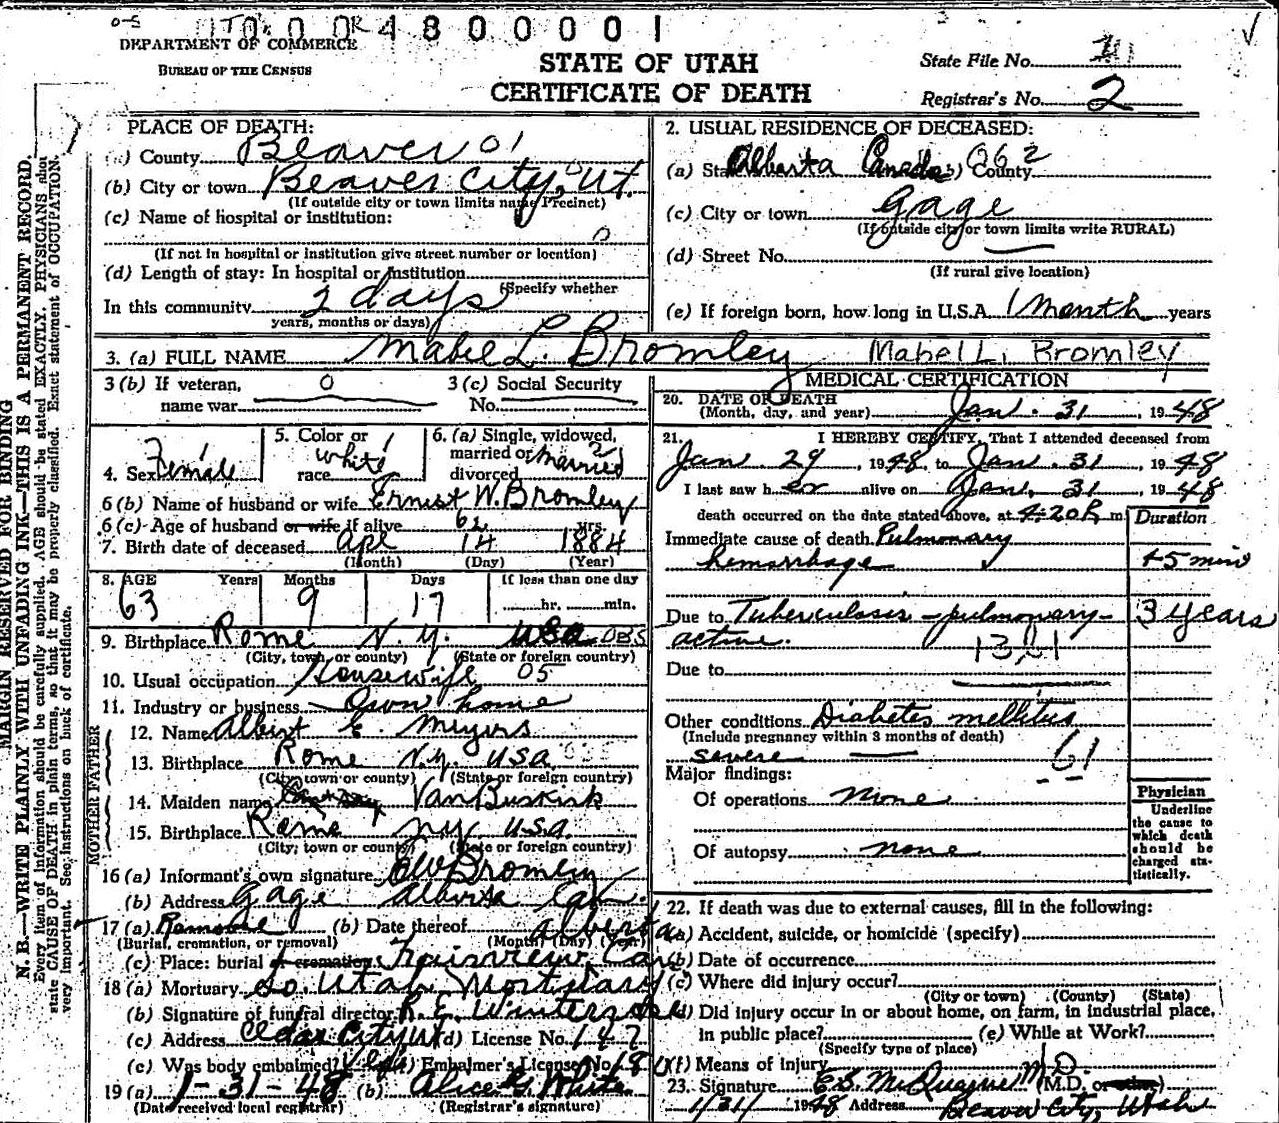 DEPARTMENT OF COMMERCE
BUREAU OF THE CENSUS
STATE OF UTAH
CERTIFICATE OF DEATH
State File No.
Registrar's No. 2
MARGIN RESERVED FOR BINDING
N. B.—WRITE PLAINLY WITH UNFADING INK—THIS IS A PERMANENT RECORD.
Every item of information should be carefully supplied. AGE should be stated EXACTLY. PHYSICIANS should
state CAUSE OF DEATH in plain terms, so that it may be properly classified. Exact statement of OCCUPATION
very important. See instructions on back of certificate.
PLACE OF DEATH:
(a) County Beaver 01
(b) City or town Beaver City, Ut.
(If outside city or town limits name Precinct)
(c) Name of hospital or institution:
(If not in hospital or institution give street number or location)
(d) Length of stay: In hospital or institution
(Specify whether
In this community 2 days
years, months or days)
2. USUAL RESIDENCE OF DECEASED:
(a) State Alberta Canada (b) County 062
(c) City or town Gage
(If outside city or town limits write RURAL)
(d) Street No.
(If rural give location)
(e) If foreign born, how long in U.S.A. 1 Month years
3. (a) FULL NAME Mabel L. Bromley Mabel L. Bromley
3 (b) If veteran, name war 0
3 (c) Social Security No.
4. Sex Female
5. Color or race white
6. (a) Single, widowed, married or divorced Married
6 (b) Name of husband or wife Ernest W. Bromley
6 (c) Age of husband or wife if alive 62 yrs.
7. Birth date of deceased Apr 14 1884
(Month) (Day) (Year)
8. AGE Years Months Days If less than one day
63 9 17 hr. min.
9. Birthplace Rome N.Y. USA
(City, town, or county) (State or foreign country)
10. Usual occupation Housewife 05
11. Industry or business Own home
FATHER
12. Name Albert E. Meyers
13. Birthplace Rome N.Y. USA
(City, town or county) (State or foreign country)
MOTHER
14. Maiden name VanBuskirk
15. Birthplace Rome N.Y. U.S.A.
(City, town or county) (State or foreign country)
16 (a) Informant's own signature EW Bromley
(b) Address Gage Alberta Can.
17 (a) Removal (b) Date thereof Alberta
(Burial, cremation, or removal) (Month) (Day) (Year)
(c) Place: burial or cremation Fairview Can
18 (a) Mortuary So. Utah Mortuary
(b) Signature of funeral director R. E.
(c) Address Cedar City Ut (d) License No. 147
(e) Was body embalmed? Yes (f) Embalmer's License No. 18
19 (a) 1-31-48 (b) Alice G. White
(Date received local registrar) (Registrar's signature)
MEDICAL CERTIFICATION
20. DATE OF DEATH
(Month, day, and year) Jan. 31, 1948
21. I HEREBY CERTIFY, That I attended deceased from
Jan. 29, 1948, to Jan. 31, 1948
I last saw her alive on Jan. 31, 1948
death occurred on the date stated above, at 4:20P m.
Duration
Immediate cause of death Pulmonary
hemorrhage 45 min
Due to Tuberculosis - pulmonary - 3 years
active.
Due to
Other conditions Diabetes mellitus
(Include pregnancy within 3 months of death)
severe 61
Major findings:
Of operations none
Of autopsy none
Physician
Underline
the cause to
which death
should be
charged sta-
tistically.
22. If death was due to external causes, fill in the following:
(a) Accident, suicide, or homicide (specify)
(b) Date of occurrence
(c) Where did injury occur?
(City or town) (County) (State)
(d) Did injury occur in or about home, on farm, in industrial place,
in public place? (e) While at Work?
(Specify type of place)
(f) Means of injury
23. Signature E.S. M.D. (M.D. or other)
1/31/1948 Address Beaver City, Utah